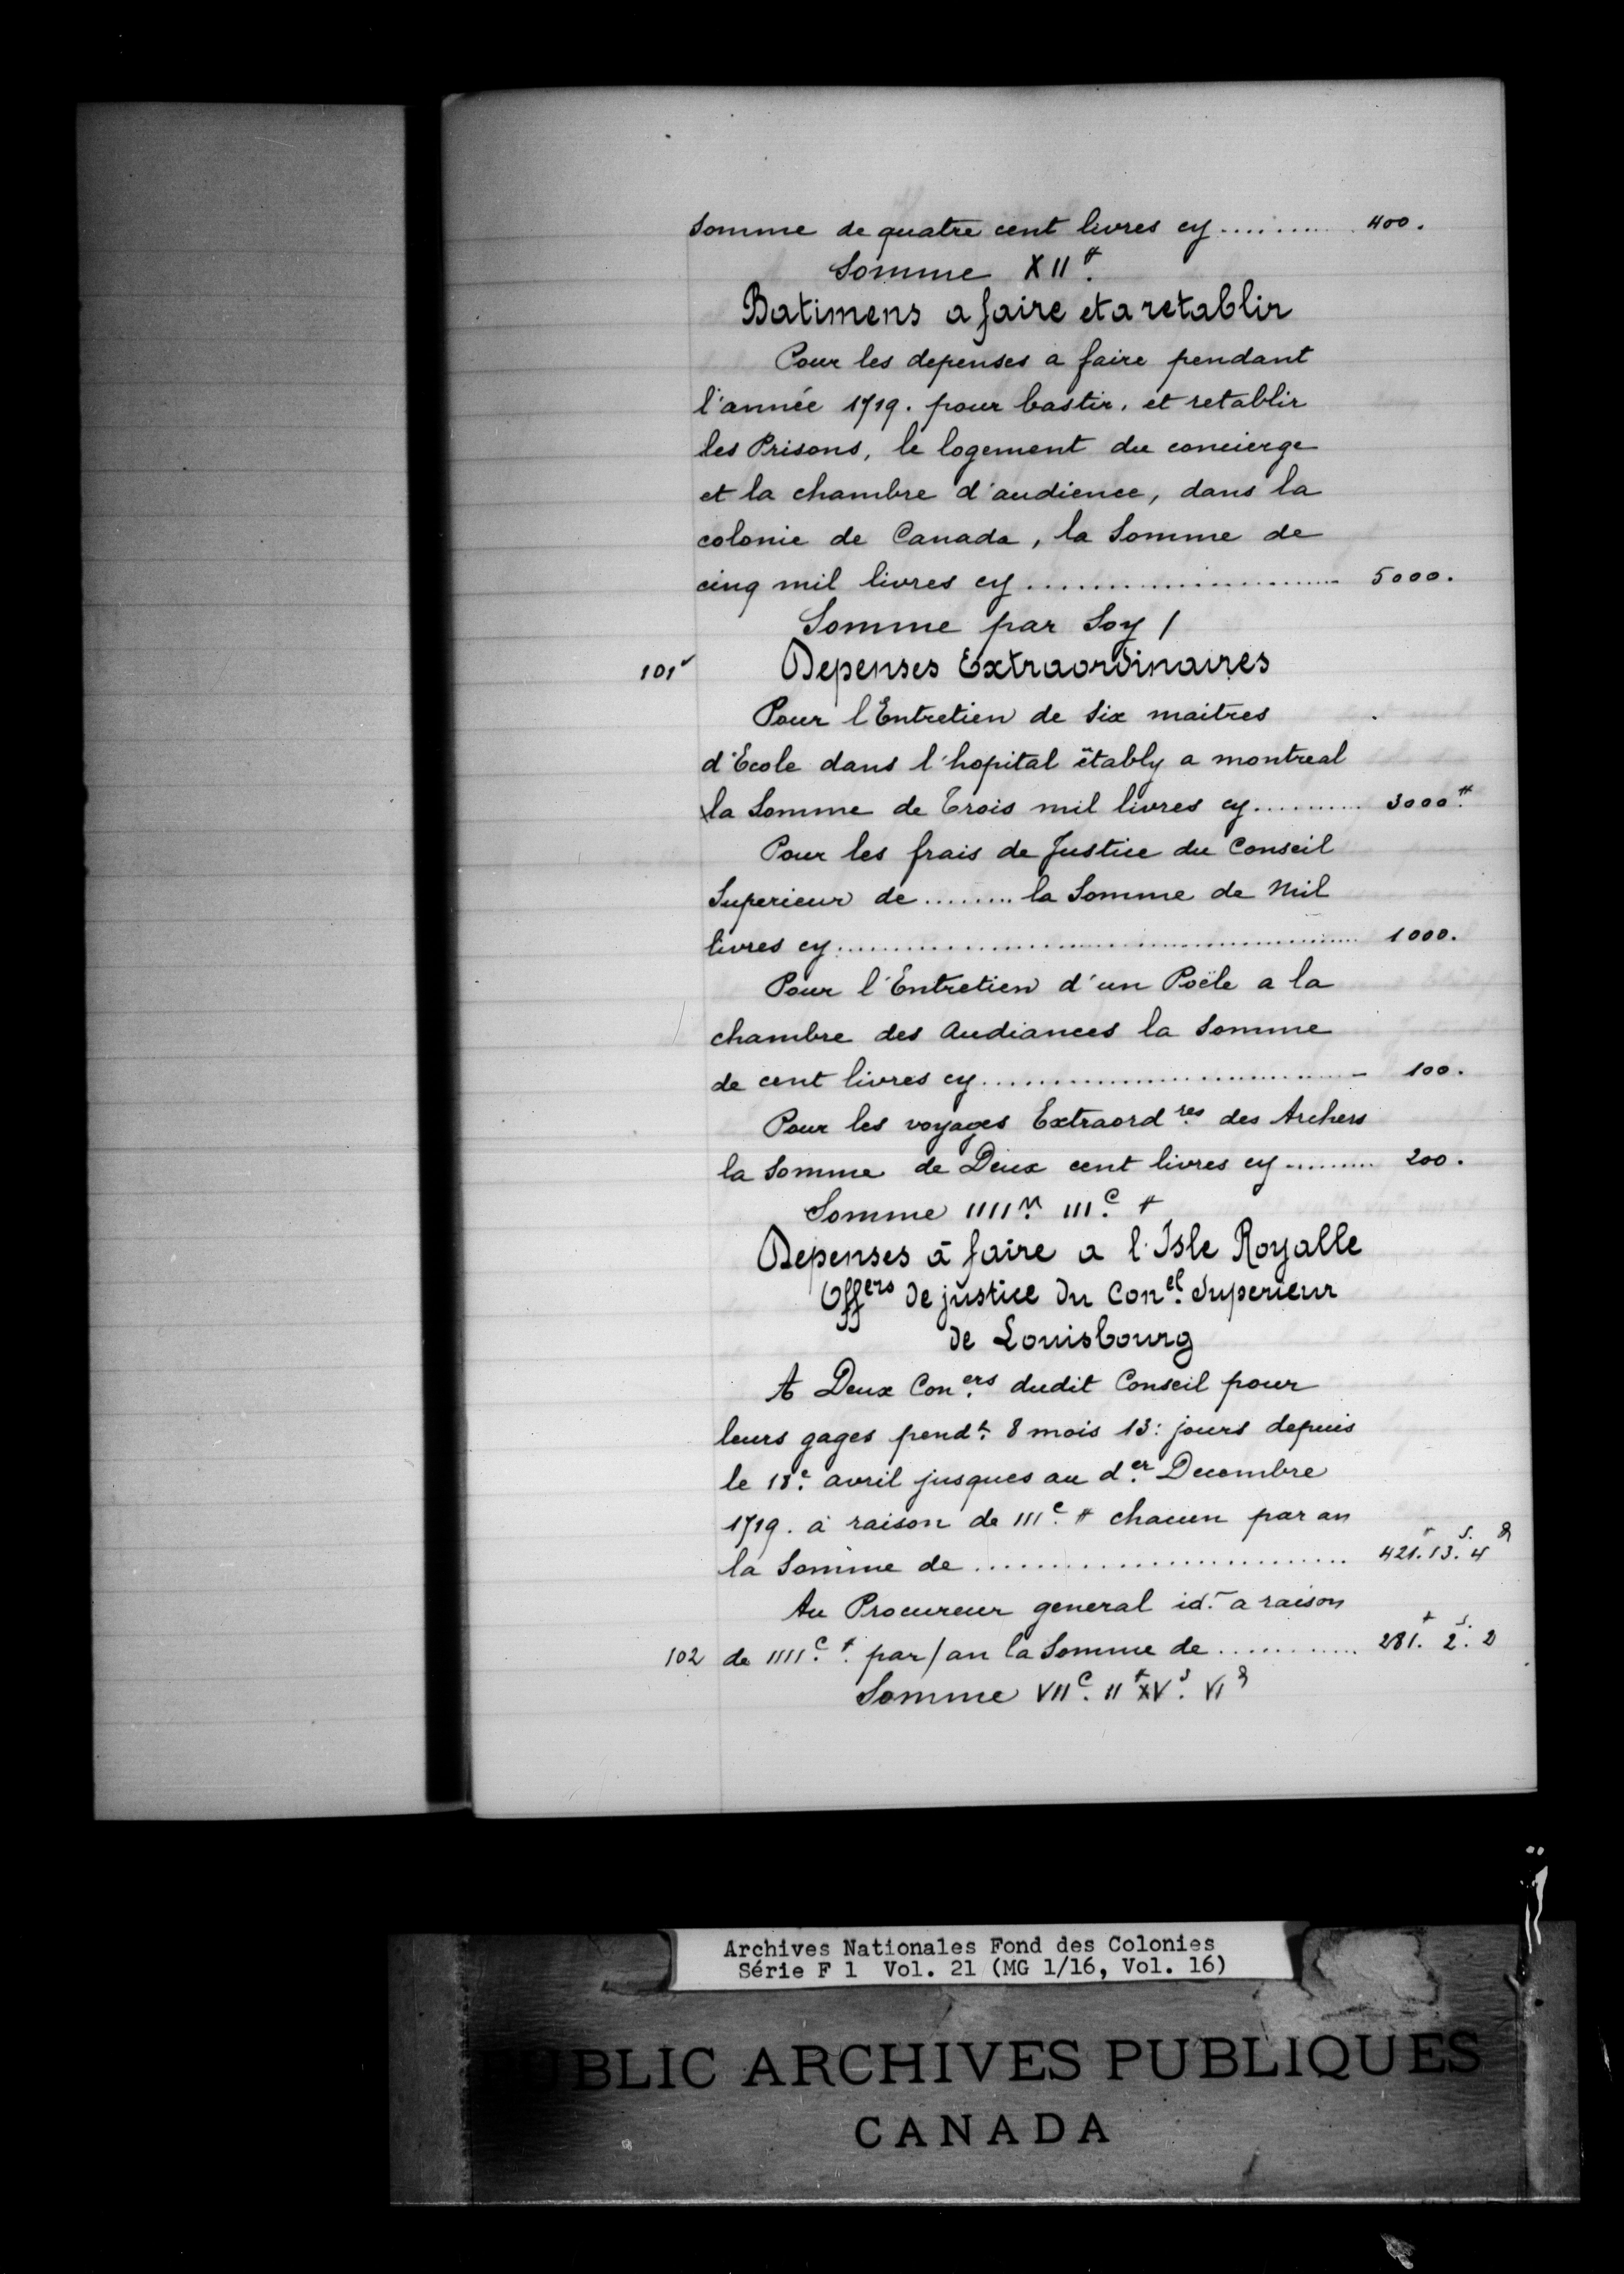 Somme de quatre cent livres cy .......... 400.
Somme XII ₶.
Batimens a faire et a retablir
Pour les depenses a faire pendant
l'année 1719. pour bastir, et retablir
les Prisons, le logement du concierge
et la chambre d'audience, dans la
colonie de Canada, la Somme de
cinq mil livres cy ........................ 5000.
Somme par Soy /
101v Depenses Extraordinaires
Pour l'Entretien de Six maitres
d'Ecole dans l'hopital ëtably a montreal
la Somme de Trois mil livres cy .......... 3000.₶
Pour les frais de Justice du Conseil
Superieur de ........ la Somme de Mil
livres cy ........................................ 1000.
Pour l'Entretien d'un Poële a la
chambre des Audiances la Somme
de cent livres cy ............................ 100.
Pour les voyages Extraord.res des Archers
la Somme de Deux cent livres cy ......... 200.
Somme IIII.M III.C ₶
Depenses à faire a l'Isle Royalle
Off.ers de justice du Con.el Superieur
de Louisbourg
A Deux Con.ers dudit Conseil pour
leurs gages pend.t 8 mois 13: jours depuis
le 18.e avril jusques au d.er Decembre
1719. à raison de III.C ₶ chacun par an
la Somme de .......................... 421.₶ 13.s. 4 d
Au Procureur general id. a raison
102 de IIII.C ₶. par / an la Somme de ............ 281.₶ 2.s. 2
Somme VII.C. II₶ XV.s. VI d
Archives Nationales Fond des Colonies
Série F 1 Vol. 21 (MG 1/16, Vol. 16)
PUBLIC ARCHIVES PUBLIQUES
CANADA